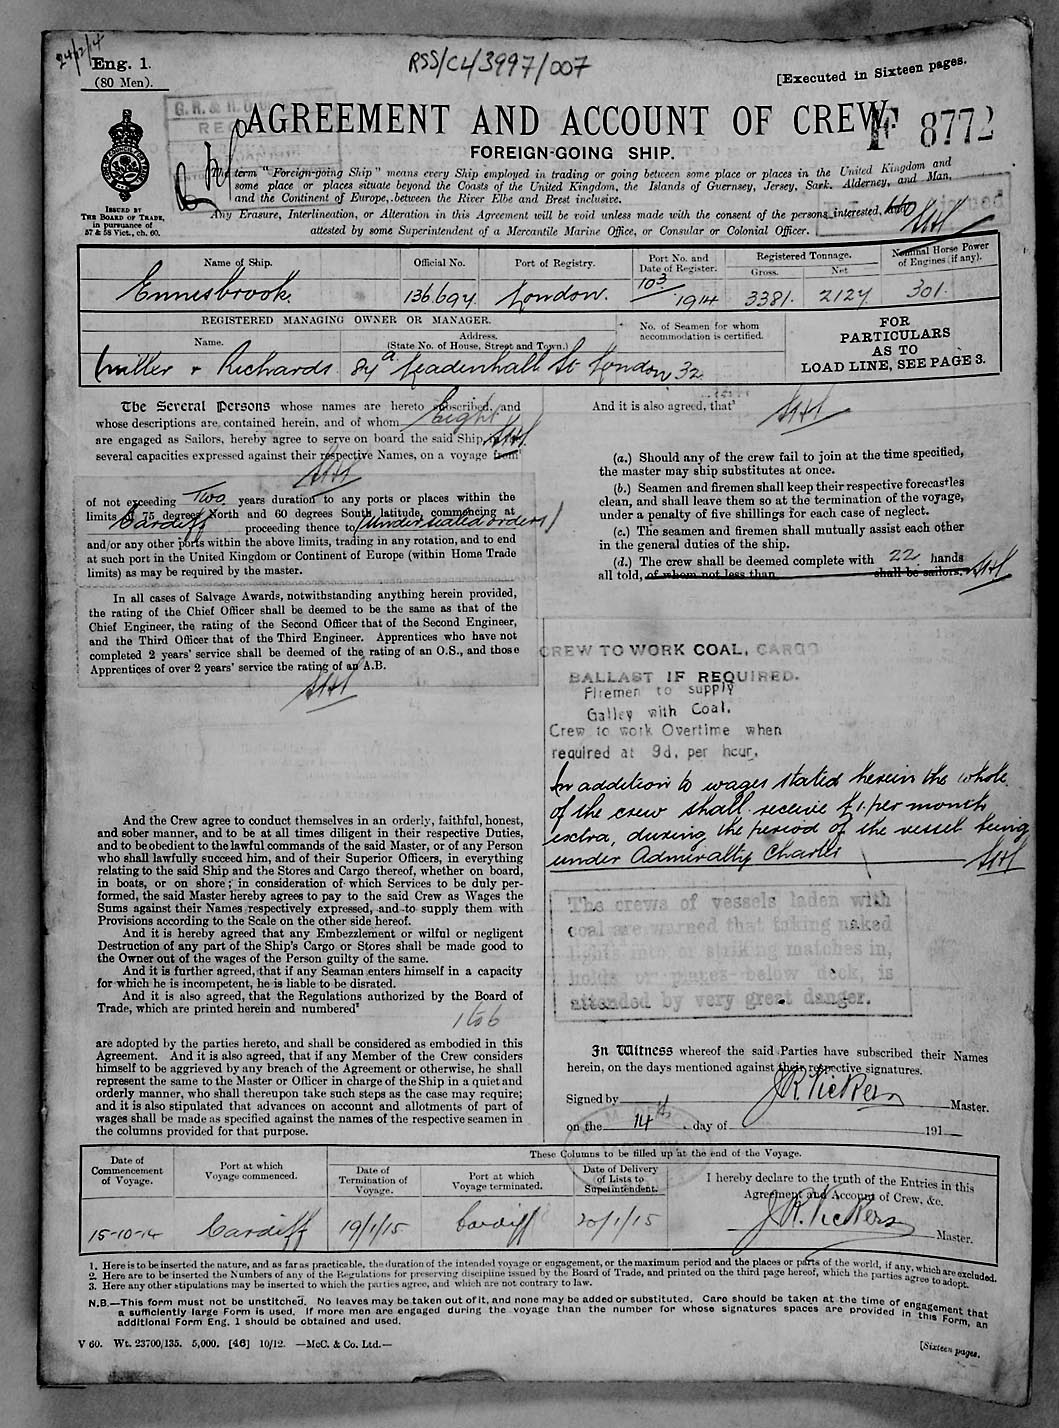 24/12/14
Eng. 1.
(80 Men).
RSS/CL/3997/007
[Executed in Sixteen pages.
AGREEMENT AND ACCOUNT OF CREW.
F 8772
FOREIGN-GOING SHIP.
ISSUED BY
THE BOARD OF TRADE,
in pursuance of
57 & 58 Vict., ch. 60.
The term "Foreign-going Ship" means every Ship employed in trading or going between some place or places in the United Kingdom and
some place or places situate beyond the Coasts of the United Kingdom, the Islands of Guernsey, Jersey, Sark, Alderney, and Man,
and the Continent of Europe, between the River Elbe and Brest inclusive.
Any Erasure, Interlineation, or Alteration in this Agreement will be void unless made with the consent of the persons interested,
attested by some Superintendent of a Mercantile Marine Office, or Consular or Colonial Officer.
Name of Ship.
Official No.
Port of Registry.
Port No. and
Date of Register.
Registered Tonnage.
Gross.
Net
Nominal Horse Power
of Engines (if any).
Ennisbrook.
136.694
London.
103
1914
3381.
2127
301.
REGISTERED MANAGING OWNER OR MANAGER.
Name.
Address.
(State No. of House, Street and Town.)
No. of Seamen for whom
accommodation is certified.
FOR
PARTICULARS
AS TO
LOAD LINE, SEE PAGE 3.
Miller & Richards
84a Leadenhall St London
32
The Several Persons whose names are hereto subscribed, and
whose descriptions are contained herein, and of whom Eight
are engaged as Sailors, hereby agree to serve on board the said Ship, in the
several capacities expressed against their respective Names, on a voyage from¹
of not exceeding Two years duration to any ports or places within the
limits of 75 degrees North and 60 degrees South latitude, commencing at
Cardiff proceeding thence to (under sealed orders)
and/or any other ports within the above limits, trading in any rotation, and to end
at such port in the United Kingdom or Continent of Europe (within Home Trade
limits) as may be required by the master.
In all cases of Salvage Awards, notwithstanding anything herein provided,
the rating of the Chief Officer shall be deemed to be the same as that of the
Chief Engineer, the rating of the Second Officer that of the Second Engineer,
and the Third Officer that of the Third Engineer. Apprentices who have not
completed 2 years' service shall be deemed of the rating of an O.S., and those
Apprentices of over 2 years' service the rating of an A.B.
And the Crew agree to conduct themselves in an orderly, faithful, honest,
and sober manner, and to be at all times diligent in their respective Duties,
and to be obedient to the lawful commands of the said Master, or of any Person
who shall lawfully succeed him, and of their Superior Officers, in everything
relating to the said Ship and the Stores and Cargo thereof, whether on board,
in boats, or on shore; in consideration of which Services to be duly per-
formed, the said Master hereby agrees to pay to the said Crew as Wages the
Sums against their Names respectively expressed, and to supply them with
Provisions according to the Scale on the other side hereof.
And it is hereby agreed that any Embezzlement or wilful or negligent
Destruction of any part of the Ship's Cargo or Stores shall be made good to
the Owner out of the wages of the Person guilty of the same.
And it is further agreed, that if any Seaman enters himself in a capacity
for which he is incompetent, he is liable to be disrated.
And it is also agreed, that the Regulations authorized by the Board of
Trade, which are printed herein and numbered²
1 to 6
are adopted by the parties hereto, and shall be considered as embodied in this
Agreement. And it is also agreed, that if any Member of the Crew considers
himself to be aggrieved by any breach of the Agreement or otherwise, he shall
represent the same to the Master or Officer in charge of the Ship in a quiet and
orderly manner, who shall thereupon take such steps as the case may require;
and it is also stipulated that advances on account and allotments of part of
wages shall be made as specified against the names of the respective seamen in
the columns provided for that purpose.
And it is also agreed, that³
(a.) Should any of the crew fail to join at the time specified,
the master may ship substitutes at once.
(b.) Seamen and firemen shall keep their respective forecastles
clean, and shall leave them so at the termination of the voyage,
under a penalty of five shillings for each case of neglect.
(c.) The seamen and firemen shall mutually assist each other
in the general duties of the ship.
(d.) The crew shall be deemed complete with 22 hands
all told, of whom not less than shall be sailors.
CREW TO WORK COAL, CARGO
BALLAST IF REQUIRED.
Firemen to supply
Galley with Coal.
Crew to work Overtime when
required at 9d. per hour.
In addition to wages stated herein the whole
of the crew shall receive £1 per month
extra, during the period of the vessel being
under Admiralty Charter
The crews of vessels laden with
coal are warned that taking naked
lights into, or striking matches in,
holds or places below deck, is
attended by very great danger.
In Witness whereof the said Parties have subscribed their Names
herein, on the days mentioned against their respective signatures.
Signed by J.R. Vickers Master.
on the 14th day of 191
These Columns to be filled up at the end of the Voyage.
Date of
Commencement
of Voyage.
Port at which
Voyage commenced.
Date of
Termination of
Voyage.
Port at which
Voyage terminated.
Date of Delivery
of Lists to
Superintendent.
I hereby declare to the truth of the Entries in this
Agreement and Account of Crew, &c.
15-10-14
Cardiff
19/1/15
Cardiff
20/1/15
J.R. Vickers
Master.
1. Here is to be inserted the nature, and as far as practicable, the duration of the intended voyage or engagement, or the maximum period and the places or parts of the world, if any, which are excluded.
2. Here are to be inserted the Numbers of any of the Regulations for preserving discipline issued by the Board of Trade, and printed on the third page hereof, which the parties agree to adopt.
3. Here any other stipulations may be inserted to which the parties agree, and which are not contrary to law.
N.B.—This form must not be unstitched. No leaves may be taken out of it, and none may be added or substituted. Care should be taken at the time of engagement that
a sufficiently large Form is used. If more men are engaged during the voyage than the number for whose signatures spaces are provided in this Form, an
additional Form Eng. 1 should be obtained and used.
V 60. Wt. 23700/135. 5,000. [46] 10/12. —McC. & Co. Ltd.—
[Sixteen pages.